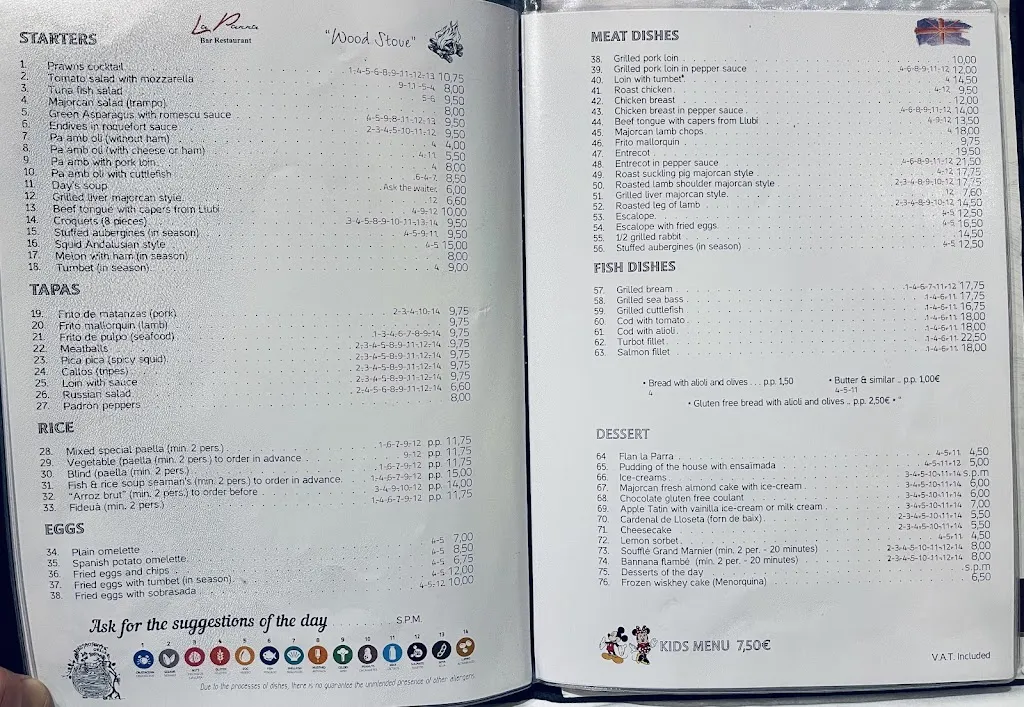 La Parra
Bar Restaurant
"Wood Stove"
STARTERS
1. Prawns cocktail 1-4-5-6-8-9-11-12-13 10,75
2. Tomato salad with mozzarella 9-11-5-4 8,00
3. Tuna fish salad 5-6 9,50
4. Majorcan salad (trampo) 8,00
5. Green Asparagus with romescu sauce 4-5-9-8-11-12-13 9,50
6. Endives in roquefort sauce 2-3-4-5-10-11-12 9,50
7. Pa amb oli (without ham) 4 4,00
8. Pa amb oli (with cheese or ham) 4-11 5,50
9. Pa amb with pork loin 4 8,00
10. Pa amb oli with cuttlefish 6-4-7 8,50
11. Day's soup Ask the waiter 6,00
12. Grilled liver majorcan style 12 6,60
13. Beef tongue with capers from Llubi 4-9-12 10,00
14. Croquets (8 pieces) 3-4-5-8-9-10-11-13-14 9,50
15. Stuffed aubergines (in season) 4-5-9-11 9,50
16. Squid Andalusian style 4-5 15,00
17. Melon with ham (in season) 8,00
18. Tumbet (in season) 4 9,00
TAPAS
19. Frito de matanzas (pork) 2-3-4-10-14 9,75
20. Frito mallorquin (lamb) 9,75
21. Frito de pulpo (seafood) 1-3-4-6-7-8-9-14 9,75
22. Meatballs 2-3-4-5-8-9-11-12-14 9,75
23. Pica pica (spicy squid) 2-3-4-5-8-9-11-12-14 9,75
24. Callos (tripes) 2-3-4-5-8-9-11-12-14 9,75
25. Loin with sauce 2-3-4-5-8-9-11-12-14 9,75
26. Russian salad 2-4-5-6-8-9-11-12-14 6,60
27. Padrón peppers 8,00
RICE
28. Mixed special paella (min. 2 pers.) 1-6-7-9-12 p.p. 11,75
29. Vegetable (paella (min. 2 pers.) to order in advance 9-12 p.p. 11,75
30. Blind (paella (min. 2 pers.) 1-6-7-9-12 p.p. 11,75
31. Fish & rice soup seaman's (min. 2 pers.) to order in advance 1-4-6-7-9-12 p.p. 15,00
32. "Arroz brut" (min. 2 pers.) to order before 3-4-9-10-12 p.p. 14,00
33. Fideuà (min. 2 pers.) 1-4-6-7-9-12 p.p. 11,75
EGGS
34. Plain omelette 4-5 7,00
35. Spanish potato omelette 4-5 8,50
36. Fried eggs and chips 4-5 6,75
37. Fried eggs with tumbet (in season) 4-5 12,00
38. Fried eggs with sobrasada 4-5-12 10,00
Ask for the suggestions of the day S.P.M.
1 2 3 4 5 6 7 8 9 10 11 12 13 14
Due to the processes of dishes, there is no guarantee the unintended presence of other allergens
MEAT DISHES
38. Grilled pork loin 10,00
39. Grilled pork loin in pepper sauce 4-6-8-9-11-12 12,00
40. Loin with tumbet 4 14,50
41. Roast chicken 4-12 9,50
42. Chicken breast 12,00
43. Chicken breast in pepper sauce 4-6-8-9-11-12 14,00
44. Beef tongue with capers from Llubi 4-9-12 13,50
45. Majorcan lamb chops 4 18,00
46. Frito mallorquin 9,75
47. Entrecot 19,50
48. Entrecot in pepper sauce 4-6-8-9-11-12 21,50
49. Roast suckling pig majorcan style 4-12 17,75
50. Roasted lamb shoulder majorcan style 2-3-4-8-9-10-12 17,75
51. Grilled liver majorcan style 12 7,60
52. Roasted leg of lamb 2-3-4-8-9-10-12 14,50
53. Escalope 4-5 12,50
54. Escalope with fried eggs 4-5 16,50
55. 1/2 grilled rabbit 14,50
56. Stuffed aubergines (in season) 4-5 12,50
FISH DISHES
57. Grilled bream 1-4-6-7-11-12 17,75
58. Grilled sea bass 1-4-6-11 17,75
59. Grilled cuttlefish 1-4-6-11 16,75
60. Cod with tomato 1-4-6-11 18,00
61. Cod with alioli 1-4-6-11 18,00
62. Turbot fillet 1-4-6-11 22,50
63. Salmon fillet 1-4-6-11 18,00
• Bread with alioli and olives . . . p.p. 1,50 • Butter & similar .. p.p. 1,00€
4 4-5-11
• Gluten free bread with alioli and olives .. p.p. 2,50€ • "
DESSERT
64 Flan la Parra 4-5-11 4,50
65. Pudding of the house with ensaimada 4-5-11-12 5,00
66. Ice-creams 3-4-5-10-11-14 s.p.m
67. Majorcan fresh almond cake with ice-cream 3-4-5-10-11-14 6,00
68. Chocolate gluten free coulant 3-4-5-10-11-14 6,00
69. Apple Tatin with vainilla ice-cream or milk cream 3-4-5-10-11-14 7,00
70. Cardenal de Lloseta (forn de baix) 2-3-4-5-10-11-14 5,50
71. Cheesecake 2-3-4-5-10-11-14 5,50
72. Lemon sorbet 4-5-11 4,50
73. Soufflé Grand Marnier (min. 2 per. - 20 minutes) 2-3-4-5-10-11-12-14 8,00
74. Bannana flambé (min. 2 per. - 20 minutes) 2-3-4-5-10-11-12-14 8,00
75. Desserts of the day s.p.m
76. Frozen wiskhey cake (Menorquina) 6,50
KIDS MENU 7,50€
V.A.T. Included